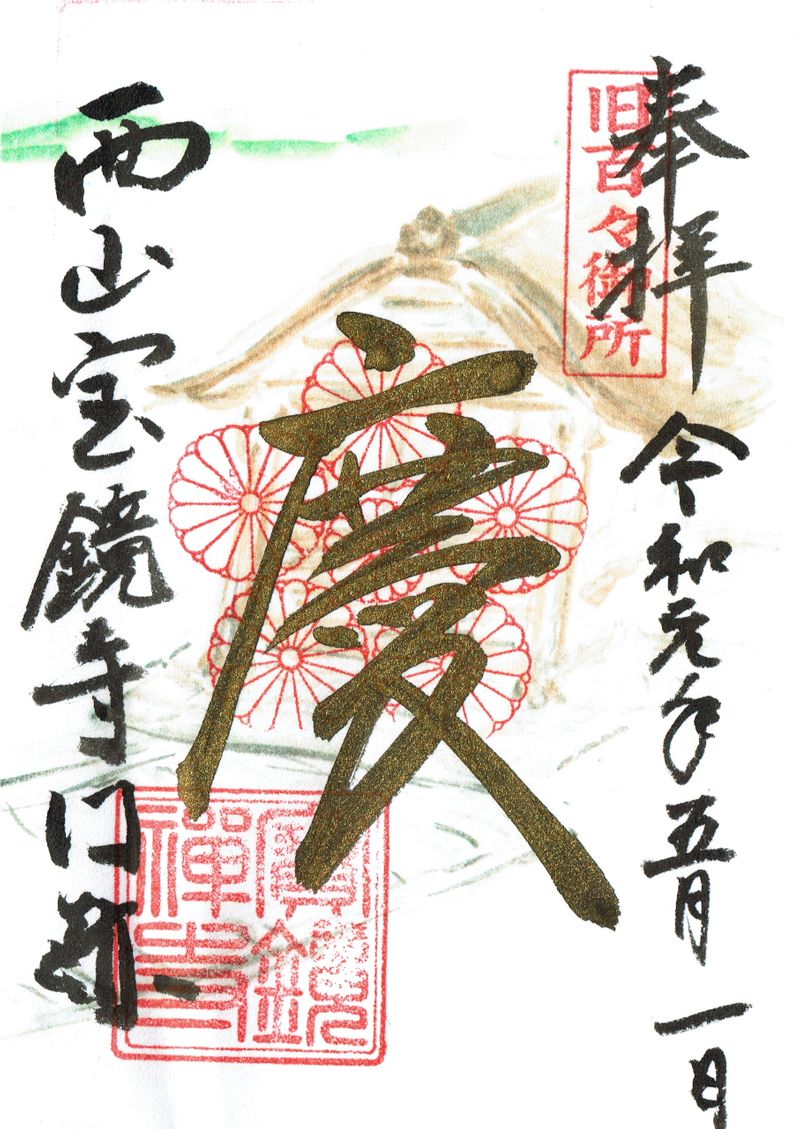 奉拝
令和元年五月一日
旧百々御所
慶
西山宝鏡寺門跡
寳鏡
禅寺